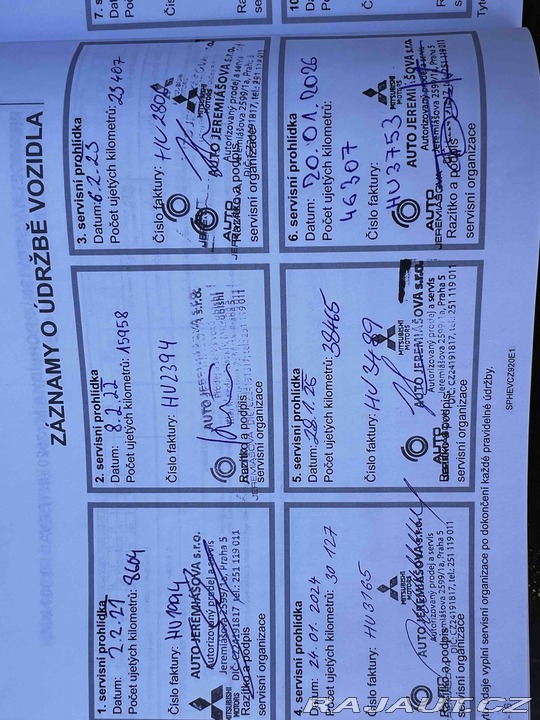 ZÁZNAMY O ÚDRŽBĚ VOZIDLA
1. servisní prohlídka
Datum: 2.2.21
Počet ujetých kilometrů: 8604
Číslo faktury: HU1994
MITSUBISHI MOTORS
AUTO JEREMIÁŠOVA s.r.o.
Autorizovaný prodej a servis
Jeremiášova 2599/1a, Praha 5
DIČ: CZ24191817, tel.: 251 119 011
Razítko a podpis
servisní organizace
2. servisní prohlídka
Datum: 8.2.22
Počet ujetých kilometrů: 15958
Číslo faktury: HU2394
AUTO JEREMIÁŠOVA s.r.o.
Razítko a podpis
servisní organizace
3. servisní prohlídka
Datum: 6.2.23
Počet ujetých kilometrů: 23407
Číslo faktury:
MITSUBISHI MOTORS
AUTO JEREMIÁŠOVA s.r.o.
Autorizovaný prodej a servis
Jeremiášova 2599/1a, Praha 5
DIČ: CZ24191817, tel.: 251 119 011
AUTO
Razítko a podpis
servisní organizace
4. servisní prohlídka
Datum: 24.01.2024
Počet ujetých kilometrů: 30 127
Číslo faktury: HU3165
MITSUBISHI MOTORS
AUTO JEREMIÁŠOVA s.r.o.
Autorizovaný prodej a servis
Jeremiášova 2599/1a, Praha 5
DIČ: CZ24191817, tel.: 251 119 011
Razítko a podpis
servisní organizace
5. servisní prohlídka
Datum: 28.1.25
Počet ujetých kilometrů: 38465
Číslo faktury: HU3489
MITSUBISHI MOTORS
AUTO JEREMIÁŠOVA s.r.o.
Autorizovaný prodej a servis
Jeremiášova 2599/1a, Praha 5
DIČ: CZ24191817, tel.: 251 119 011
AUTO
Razítko a podpis
servisní organizace
6. servisní prohlídka
Datum: 20.01.2026
Počet ujetých kilometrů:
46307
Číslo faktury:
HU3753
MITSUBISHI MOTORS
AUTO JEREMIÁŠOVA s.r.o.
Autorizovaný prodej a servis
Jeremiášova 2599/1a, Praha 5
AUTO
JEREMIÁŠOVA
Razítko a podpis
servisní organizace
údaje vyplní servisní organizace po dokončení každé pravidelné údržby.
SPHEVCZ920E1
RAJAUT.CZ